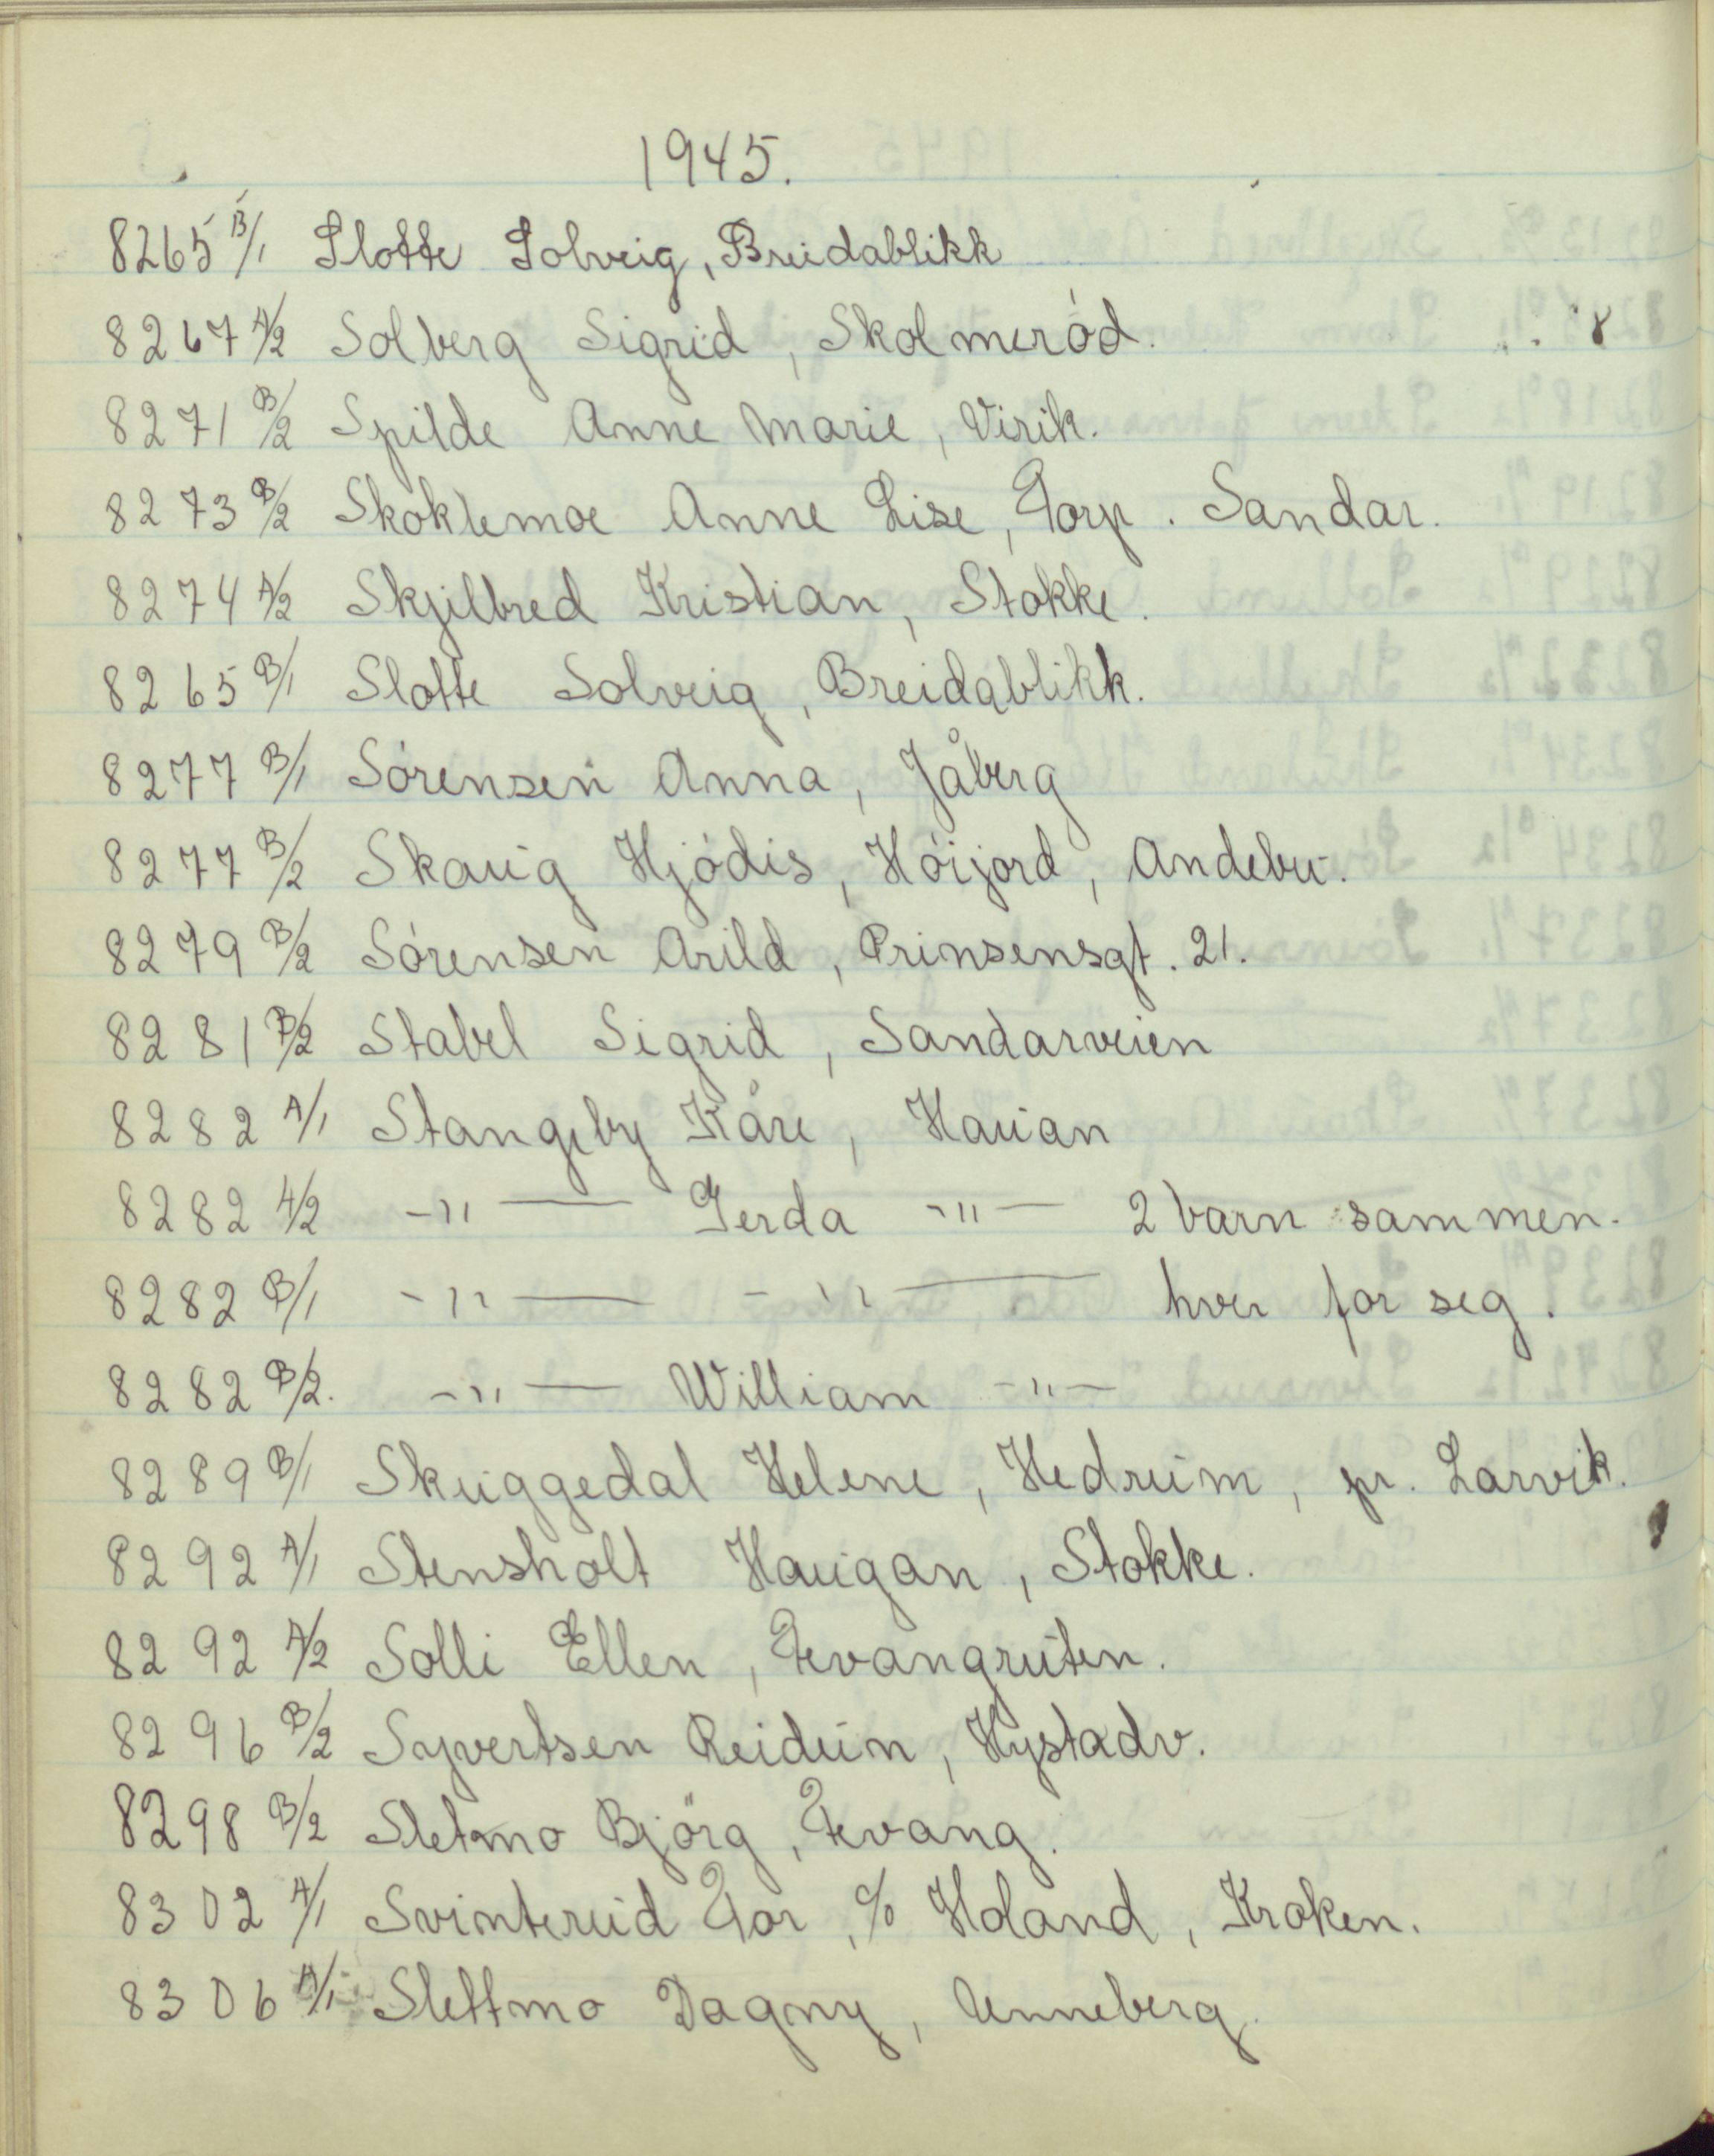 1945.
8265 B/1 Slotte Solveig, Breidablikk
8267 A/2 Solberg Sigrid, Skolmeród.
8271 B/2 Spilde Anne Marie, Virik.
8273 B/2 Skoklemoe Anne Lise, Torp. Sandar.
8274 A/2 Skjilbred Kristian, Stokke.
8265 B/1 Slotte Solveig, Breidablikk.
8277 B/1 Sórensen Anna, Jåberg
8277 B/2 Skaug Hjódis, Hóijord, Andebu.
8279 B/2 Sórensen Arild, Prinsensgt. 21.
8281 B/2 Stabel Sigrid, Sandarveien
8282 A/1 Stangeby Kåre, Hauan
8282 A/2 -"— Gerda -"— 2 barn sammen.
8282 B/1 -"— -"— hver for seg.
8282 B/2. -"— William -"—
8289 B/1 Skuggedal Helene, Hedrum, pr. Larvik.
8292 A/1 Stensholt Haugan, Stokke.
8292 A/2 Solli Ellen, Fevangruten.
8296 B/2 Syvertsen Reidun, Hystadv.
8298 B/2 Sletmo Björg, Fevang.
8302 A/1 Svinterud Tor, c/o Holand, Kroken.
8306 A/1 Slettmo Dagny, Unneberg.